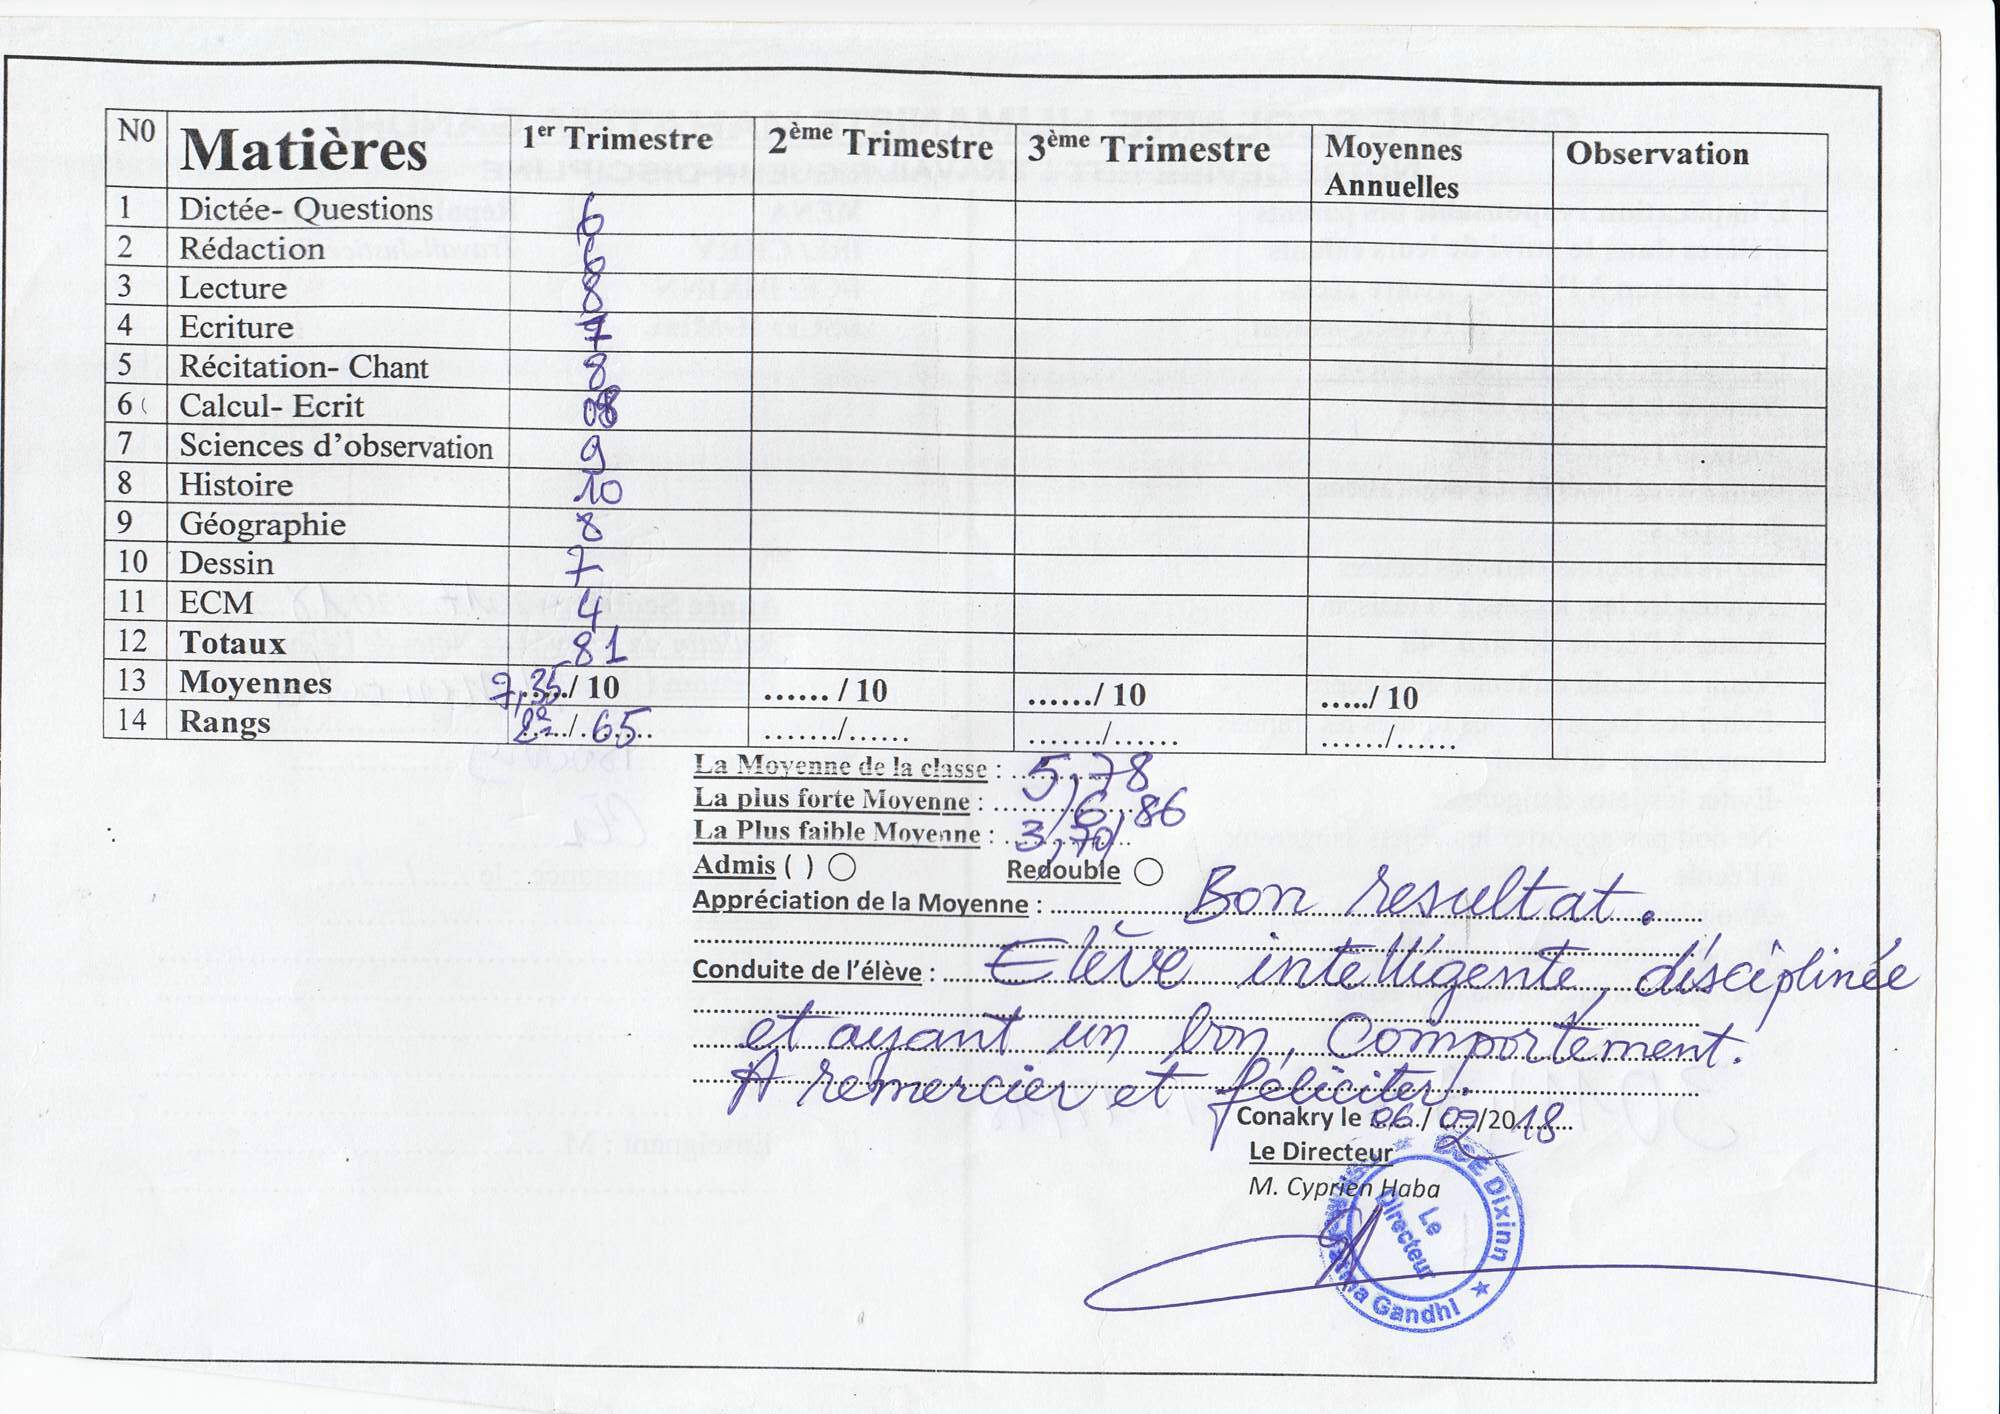 N0 Matières 1er Trimestre 2ème Trimestre 3ème Trimestre Moyennes Annuelles Observation
1 Dictée- Questions 6
2 Rédaction 6
3 Lecture 8
4 Ecriture 7
5 Récitation- Chant 8
6 Calcul- Ecrit 08
7 Sciences d’observation 9
8 Histoire 10
9 Géographie 8
10 Dessin 7
11 ECM 4
12 Totaux 81
13 Moyennes 7,35/ 10 ...... / 10 ....../ 10 ...../ 10
14 Rangs 2è / 65 ......./...... ......./...... ....../......
La Moyenne de la classe : 5,78
La plus forte Moyenne : 6,86
La Plus faible Moyenne : 3,70
Admis ( ) Redouble
Appréciation de la Moyenne : Bon resultat.
Conduite de l’élève : Elève intelligente, disciplinée
et ayant un bon Comportement.
A remercier et féliciter.
Conakry le 06/02/2018
Le Directeur
M. Cyprien Haba
DSE Dixinn
Le Directeur
Gandhi